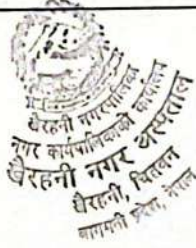 खैरहनी नगरपालिका
नगर कार्यपालिकाको कार्यालय
खैरहनी नगर अस्पताल
खैरहनी, चितवन
बागमती प्रदेश, नेपाल